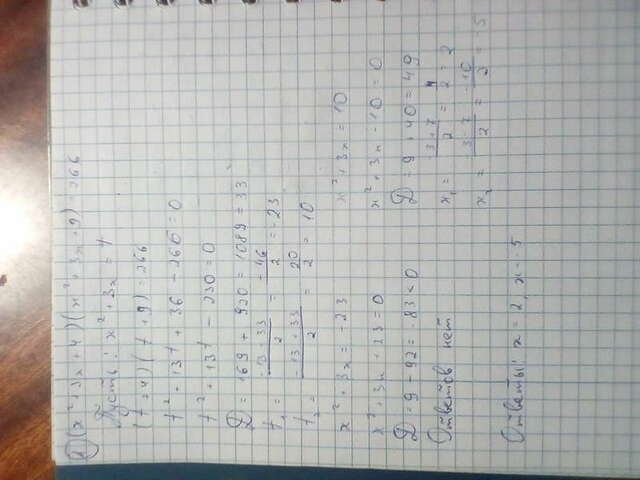 (x² + 3x + 4)(x² + 3x + 9) = 266
Пусть: x² + 3x = t
(t + 4)(t + 9) = 266
t² + 13t + 36 - 266 = 0
t² + 13t - 230 = 0
D = 169 + 920 = 1089 = 33
t₁ = -13 - 33 / 2 = -46 / 2 = -23
t₂ = -13 + 33 / 2 = 20 / 2 = 10
x² + 3x = -23
x² + 3x + 23 = 0
D = 9 - 92 = -83 < 0
Ответов нет
x² + 3x = 10
x² + 3x - 10 = 0
D = 9 + 40 = 49
x₁ = -3 + 7 / 2 = 4 / 2 = 2
x₂ = -3 - 7 / 2 = -10 / 2 = -5
Ответы: x = 2, x = -5